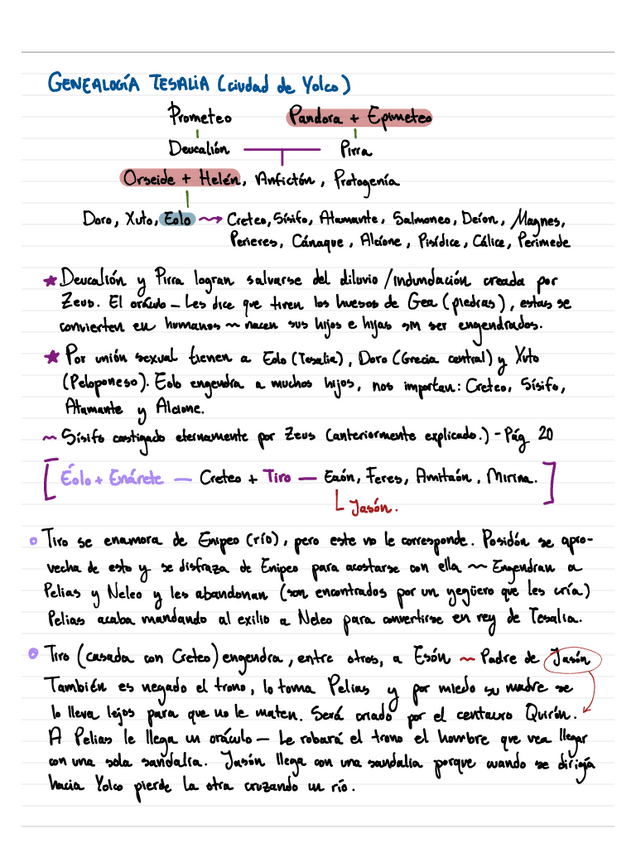 GENEALOGÍA TESALIA (ciudad de Yolco)
Prometeo Pandora + Epimeteo
Deucalión Pirra
Orseide + Helén, Anfictón, Protogenía
Doro, Xuto, Eolo ~> Creteo, Sísifo, Atamante, Salmoneo, Deíon, Magnes,
Perieres, Cánaque, Alcíone, Pisídice, Cálice, Perimede
★ Deucalión y Pirra logran salvarse del diluvio / indundación creada por
Zeus. El oráculo – Les dice que tiren los huesos de Gea (piedras), estas se
convierten en humanos ~ nacen sus hijos e hijas sin ser engendrados.
★ Por unión sexual tienen a Eolo (Tesalia), Doro (Grecia central) y Xuto
(Peloponeso). Eolo engendra a muchos hijos, nos importan: Creteo, Sísifo,
Atamante y Alcíone.
~ Sísifo castigado eternamente por Zeus (anteriormente explicado.) - Pág 20
[Éolo + Enárete — Creteo + Tiro — Esón, Feres, Amitaón, Mirina.]
Jasón.
Tiro se enamora de Enipeo (río), pero este no le corresponde. Posidón se apro-
vecha de esto y se disfraza de Enipeo para acostarse con ella ~ Engendran a
Pelias y Neleo y les abandonan (son encontrados por un yegüero que les cría)
Pelias acaba mandando al exilio a Neleo para convertirse en rey de Tesalia.
Tiro (casada con Creteo) engendra, entre otros, a Esón ~ Padre de Jasón
También es negado el trono, lo toma Pelias y por miedo su madre se
lo lleva lejos para que no le maten. Será criado por el centauro Quirón.
A Pelias le llega un oráculo – Le robará el trono el hombre que vea llegar
con una sola sandalia. Jasón llega con una sandalia porque cuando se dirigía
hacia Yolco pierde la otra cruzando un río.